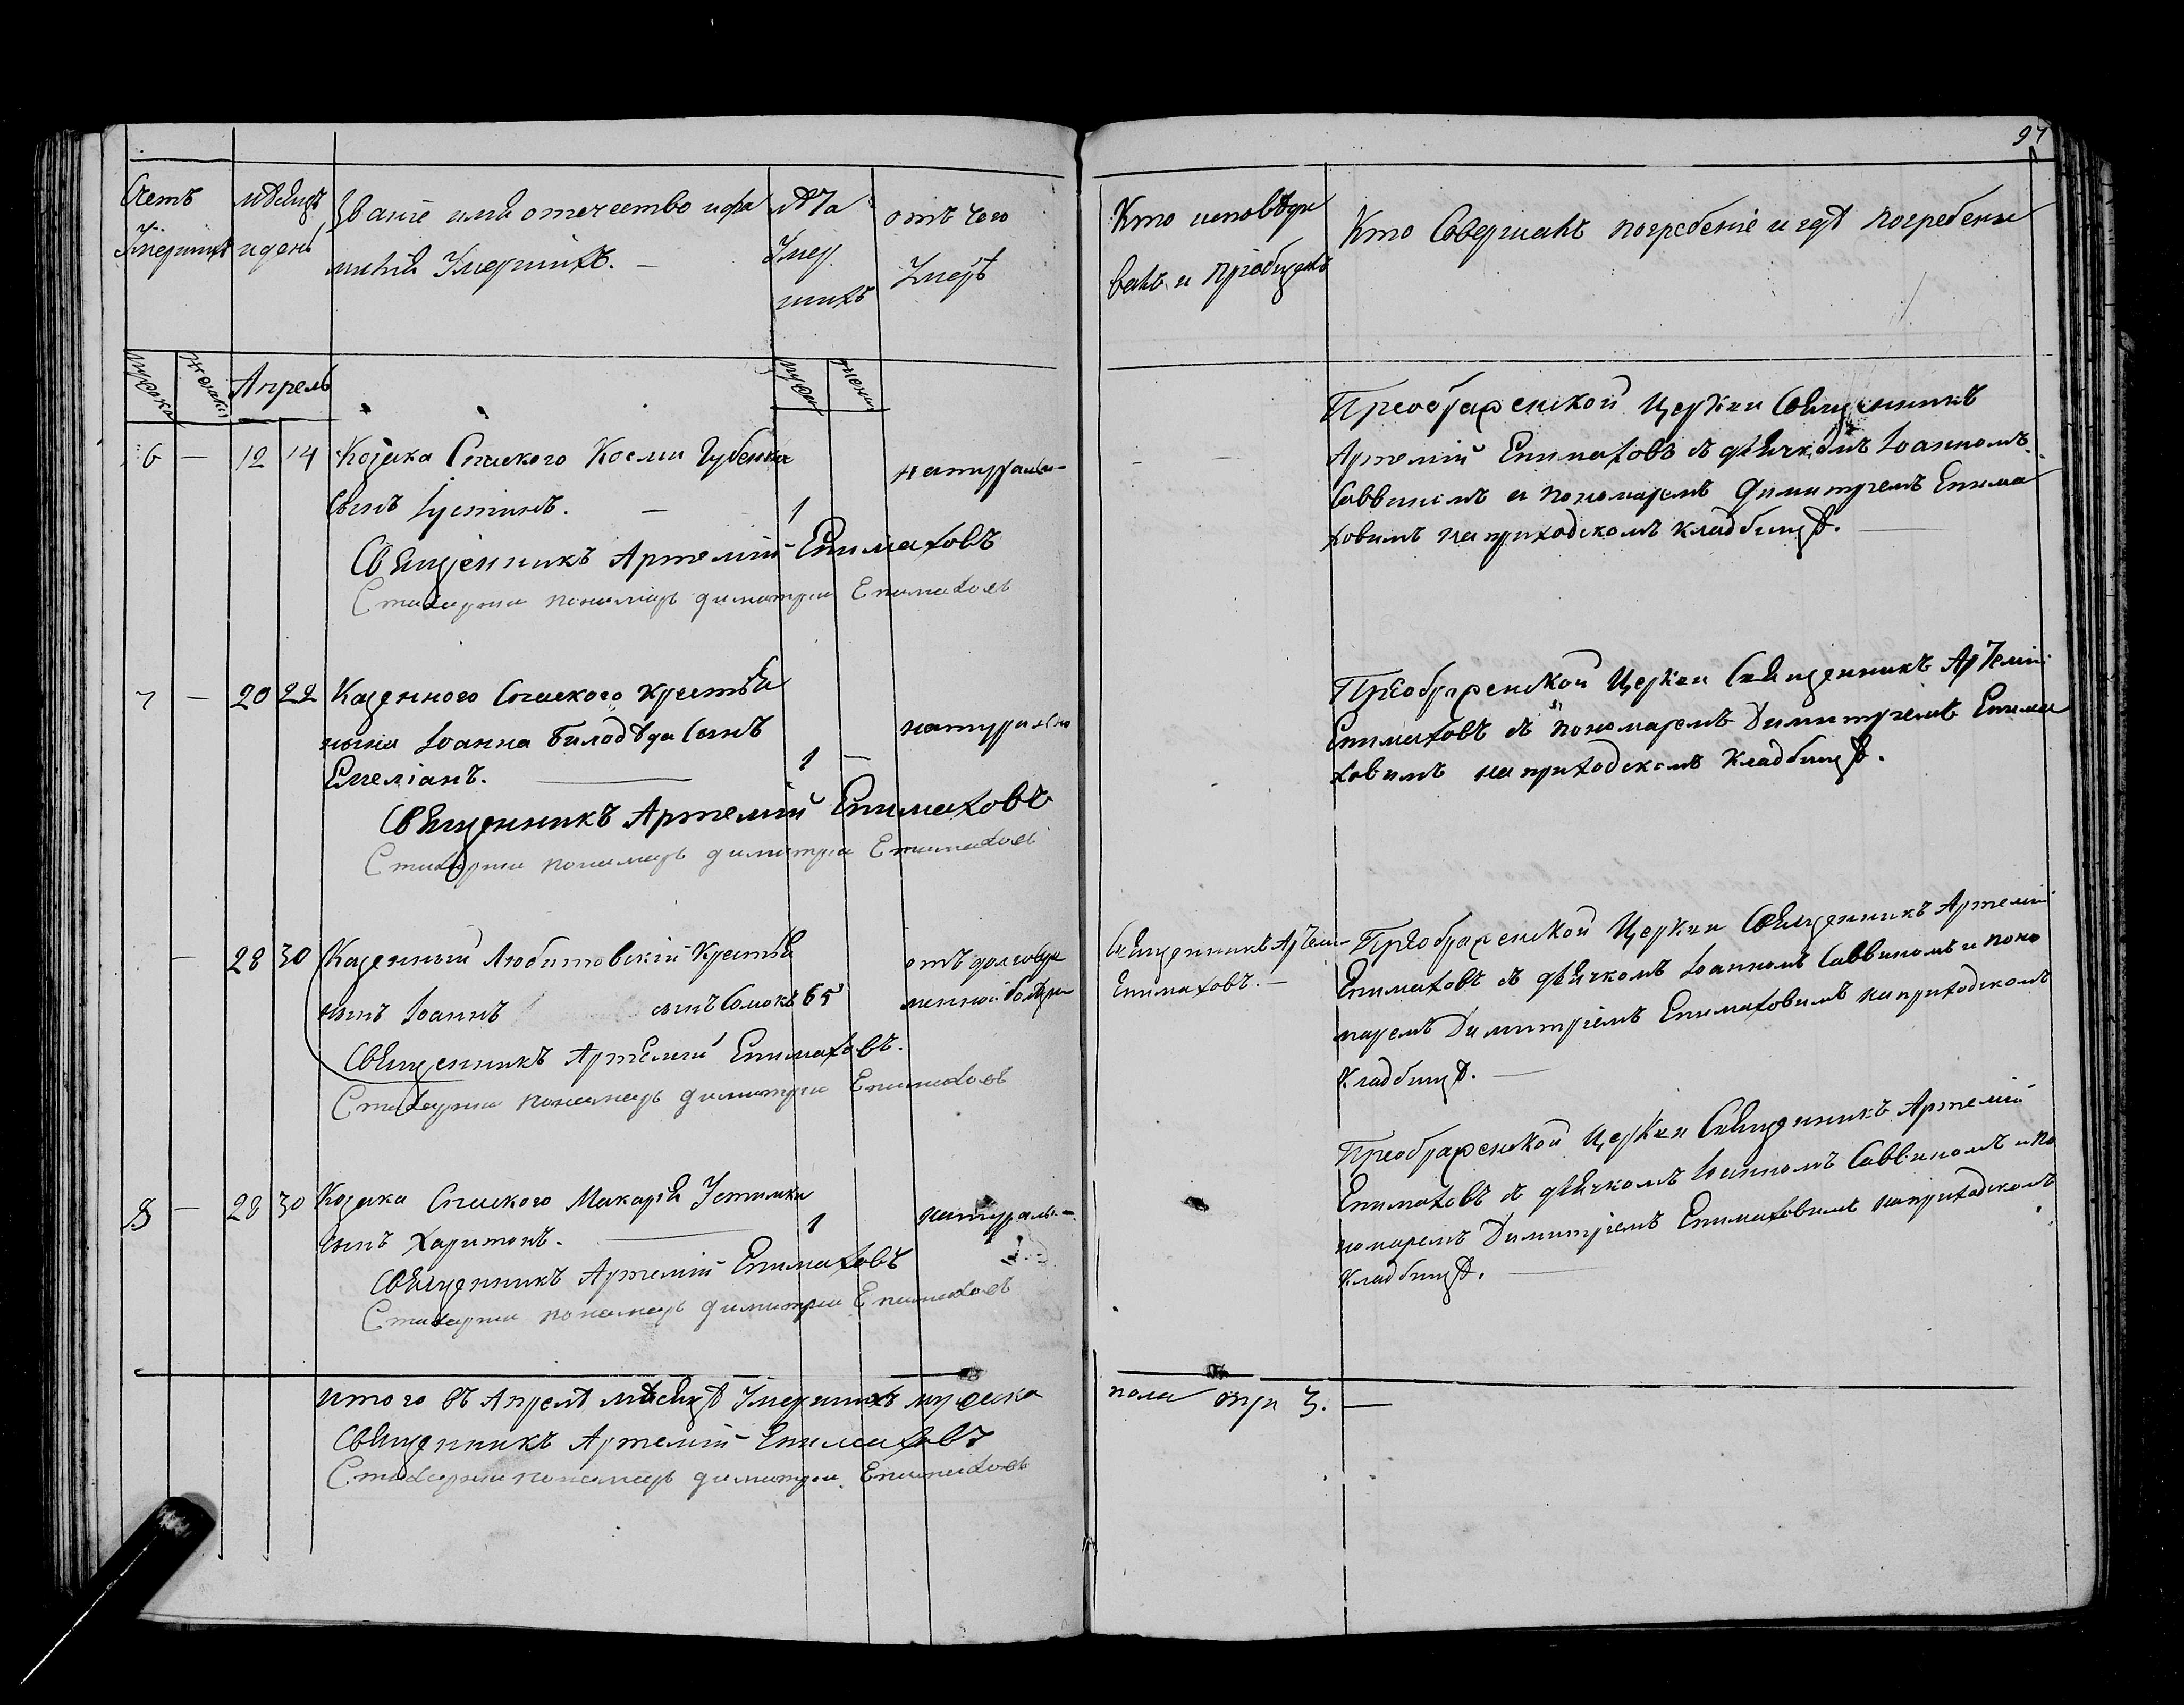 97
Счетъ
Умершихъ
мѣсяцъ
и день
Званіе имя отечество и фа
милія Умершихъ. —
лѣта
Умер
шихъ
отъ чого
Умеръ
Кто исповѣды
валъ и пріобщалъ
Кто Совершалъ погребеніе и гдѣ погребены
мужска
женска
Апрель
мужска
женска
6 — 12 14 Козака Спаского Косми Губенка
сынъ Іустинъ. — 1
натураль-
Священникъ Артемій Епимаховъ
Стихарни пономарь димитри Епимахов
Преображенской Церкви Священникъ
Артемій Епимаховъ съ дьячкомъ Іоанномъ
Саввиномъ и пономаремъ Димитріемъ Епима
ховимъ на приходскомъ кладбищѣ. —
7 — 20 22 Казенного Спаского крестья
нына Іоанна Билодѣда Сынъ
Емеліанъ. — 1 —
натурально
Священникъ Артемій Епимаховъ
Стихарни пономарь димитри Епимахов
Преображенской Церкви Священникъ Артемій
Епимаховъ съ пономаремъ Димитріемъ Епима
ховимъ на приходскомъ кладбищѣ.
— 28 30 Казенный Любитовскій крестья
нынъ Іоаннъ сынъ 65
отъ долговре
менной болѣзни
Священникъ Артемій Епимаховъ.
Стихарни пономарь димитри Епимахов
Священникъ Артем-
Епимаховъ. —
Преображенской Церкви Священникъ Артемій
Епимаховъ съ дьячкомъ Іоанномъ Саввиномъ и поно
маремъ Димитріемъ Епимаховимъ на приходскомъ
Кладбищѣ. —
8 — 28 30 Козака Спаского Макарія Устимка
сынъ Харитонъ. — 1
натураль-
Священникъ Артемій Епимаховъ
Стихарни пономарь димитри Епимахов
Преображенской Церкви Священникъ Артемій
Епимаховъ съ дьячкомъ Іоанномъ Саввиномъ и по
номаремъ Димитріемъ Епимаховимъ на приходскомъ
Кладбищѣ. —
итого въ Апрелѣ мѣсяцѣ Умершихъ мужска
пола три 3. —
Священникъ Артемій Епимаховъ
Стихарни пономарь димитри Епимахов